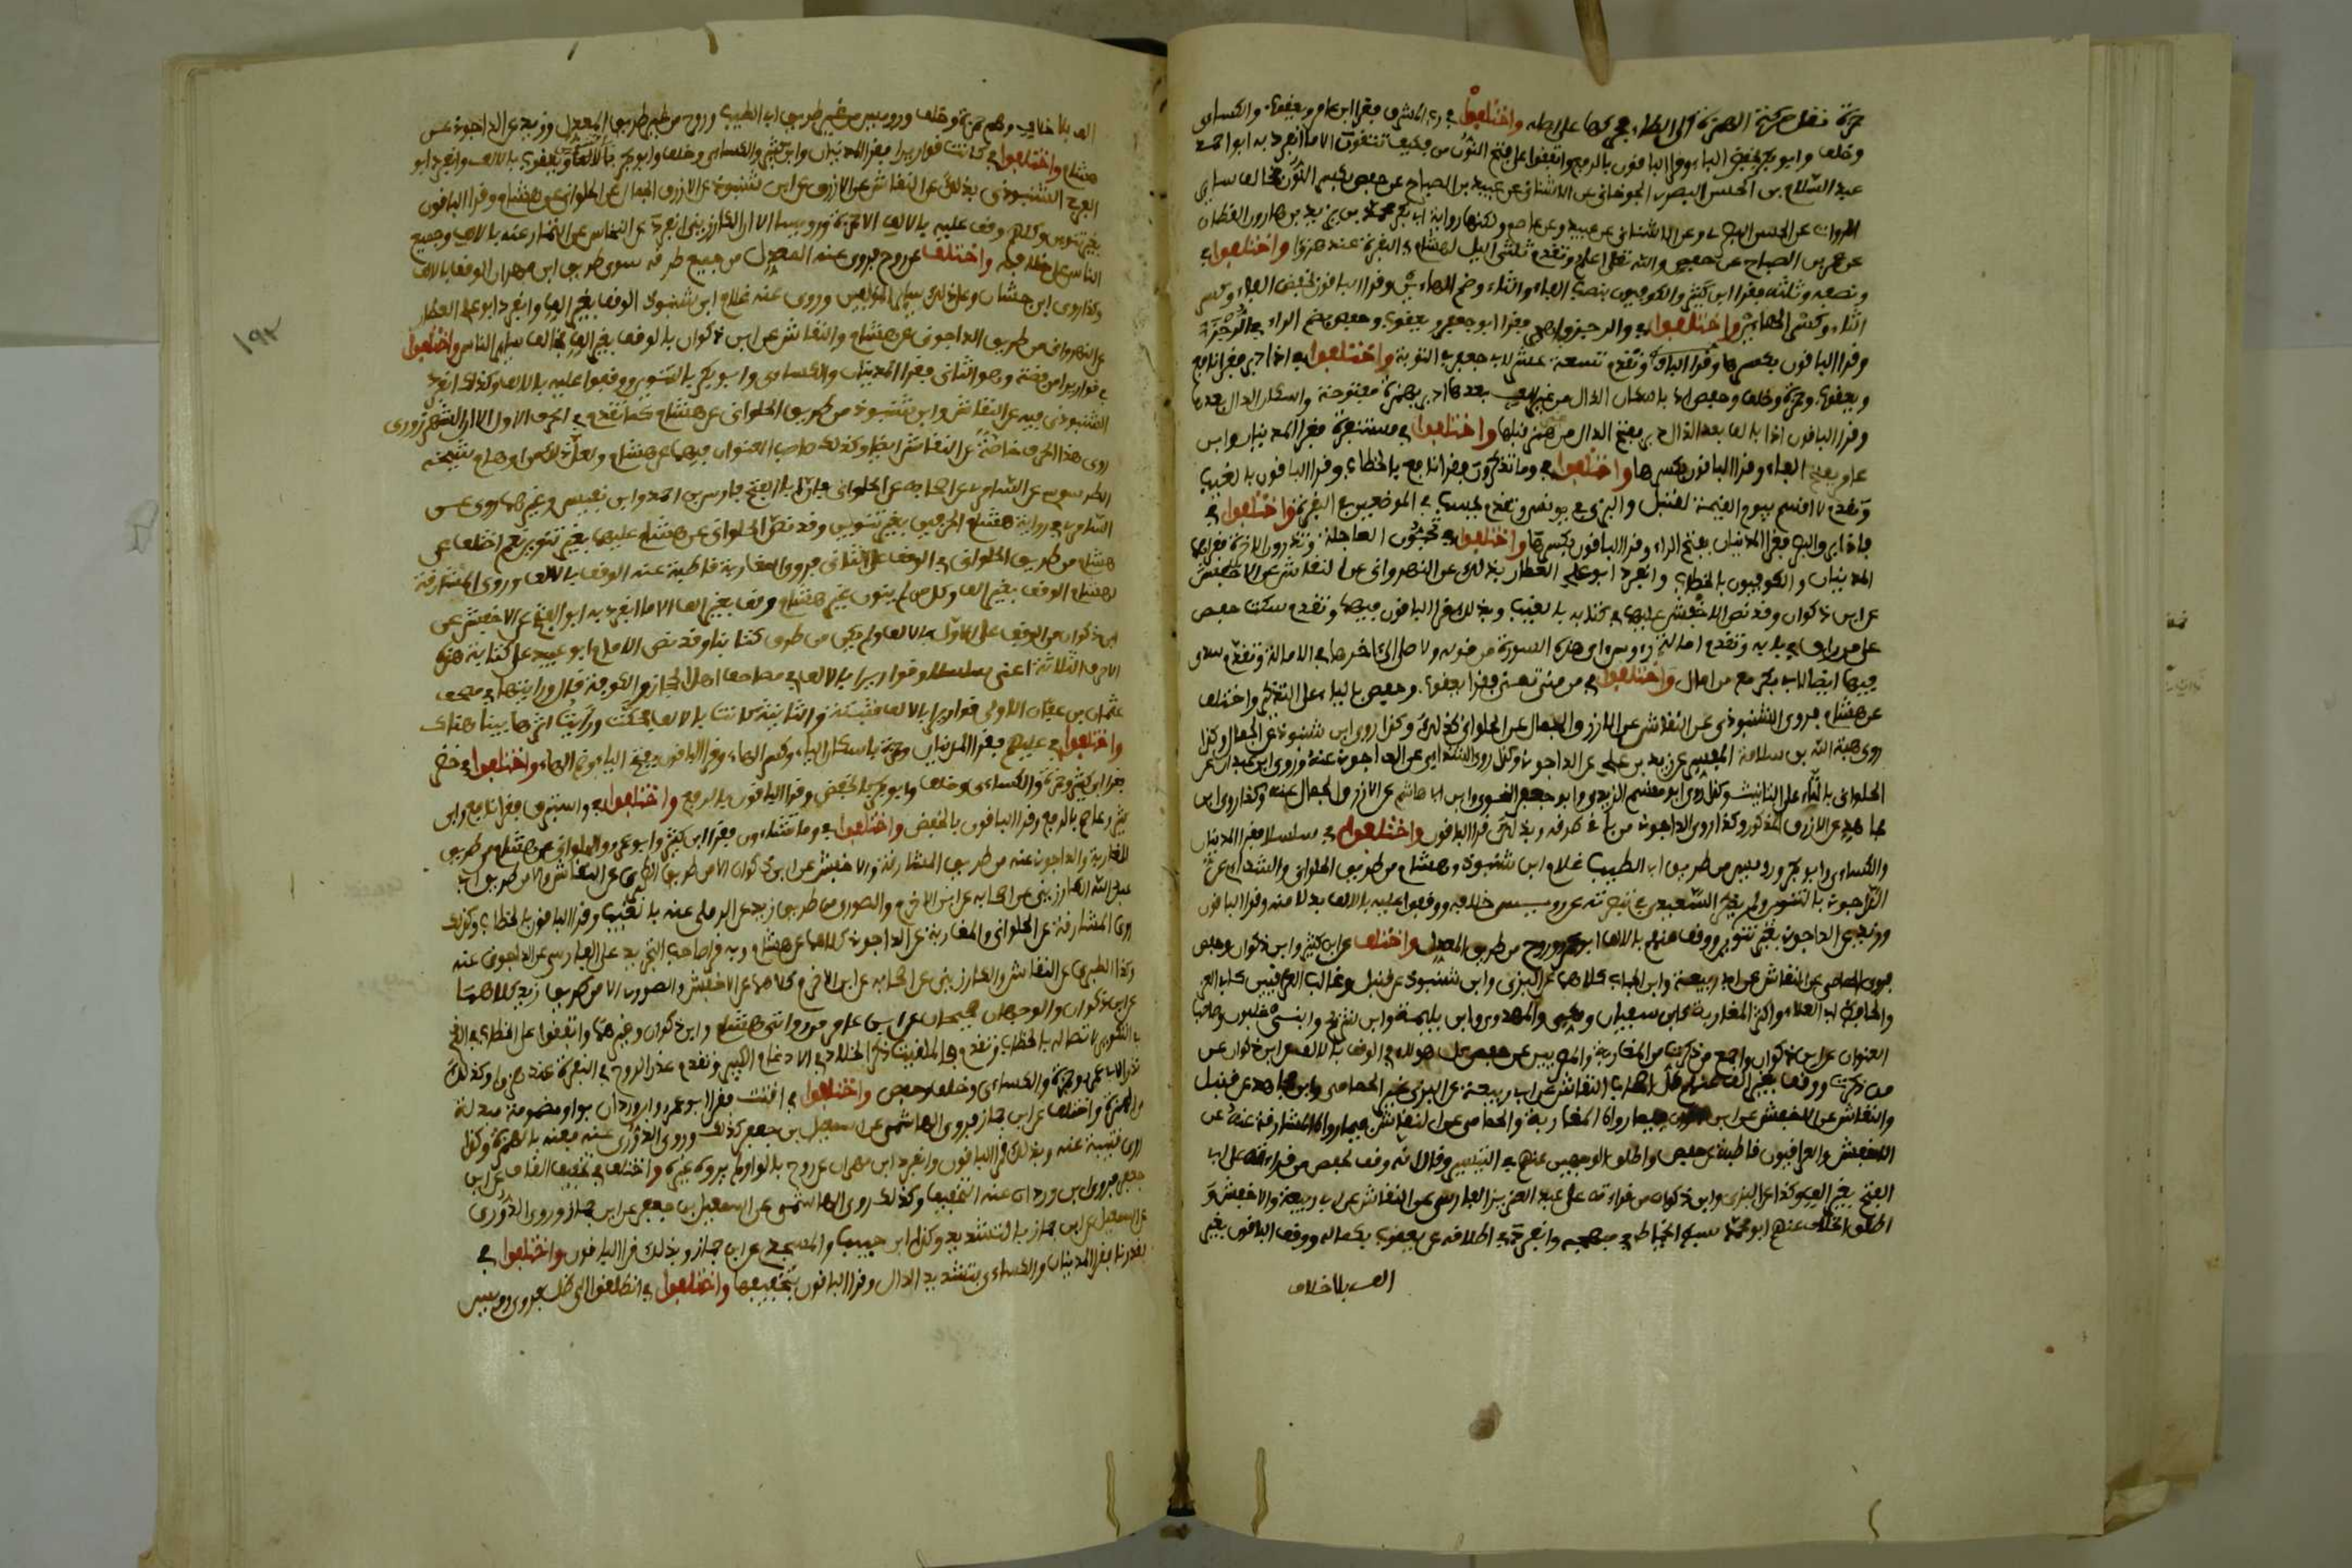 حمزة نقل حركة الهمزة الى الطاء فيحركها على اصله واختلفوا في رب المشرق فقرا ابن عامر ويعقوب والكسائي
وخلف وابو بكر بخفض الباء وقرا الباقون بالرفع واتفقوا على فتح النون من فكيف تتقون الا ما انفرد به ابو احمد
عبد السلام بن الحسين البصري الجوخاني عن الاشناني عن عبيد بن الصباح عن حفص بكسر النون مخالف سائر
الرواة عن وعن الاشناني عن عبيد وعن عاصم ولكنها رواية ابي بكر محمد بن يزيد بن هارون القطان
عن عمرو بن الصباح عن حفص والله تعالى اعلم وتقدم ثلثي الليل لهشام في البقرة عند هزوا واختلفوا في
ونصفه وثلثه فقرا ابن كثير والكوفيون بنصب الفاء والثاء وضم الهاءين وقرا الباقون بخفض الفاء وكسر
الثاء وكسر الهاءين واختلفوا في والرجز فاهجر فقرا ابو جعفر ويعقوب وحفص بضم الراء في الرجز
وقرا الباقون بكسرها وتقدم تسعة عشر لابي جعفر في التوبة واختلفوا في اذا دبر فقرا نافع
ويعقوب وحمزة وخلف وحفص اذ باسكان الذال من غير الف بعدها ادبر بهمزة مفتوحة واسكان الدال بعدها
وقرا الباقون اذا بالف بعد الذال دبر بفتح الدال من غير همز قبلها واختلفوا في مستنفرة فقرا المدنيان وابن
عامر بفتح الفاء وقرا الباقون بكسرها واختلفوا في وما تذكرون فقرا نافع بالخطاب وقرا الباقون بالغيب
وتقدم لا اقسم بيوم القيمة لقنبل والبزي في يونس وتقدم ايحسب في الموضعين في البقرة واختلفوا في
فاذا برق البصر فقرا المدنيان بفتح الراء وقرا الباقون بكسرها واختلفوا في تحبون العاجلة وتذرون الاخرة فقراهما
المدنيان والكوفيون بالخطاب وانفرد ابو علي العطار بذلك عن النهرواني عن النقاش عن الاخفش
عن ابن ذكوان وقد نص الاخفش عليهما في كتابه بالغيب وبذلك قرا الباقون فيهما وتقدم سكت حفص
على من راق في بابه وتقدم امالة رءوس اي هذه السورة من قوله ولا صلى الى اخرها في الامالة وتقدم سدى
فيها ايضا لابي بكر مع من امال واختلفوا في من مني تمنى فقرا يعقوب وحفص بالياء على التذكير واختلف
عن هشام فروى الشنبوذي عن النقاش عن الازرق الجمال عن الحلواني كذلك وكذا روى ابن شنبوذ عن الجمال وكذا
روى هبة الله بن سلامة المفسر عن زيد بن علي عن الداجوني وكذا روى الشذائي عن الداجوني عنه وروى ابن عبدان عن
الحلواني بالتاء على التانيث وكذا روى ابو القسم الزيدي وابو جعفر النحوي وابن ابي هاشم عن الازرق الجمال عنه وكذا روى ابن
مجاهد عن الازرق المذكور وكذا روى الداجوني من باقي طرقه وبذلك قرا الباقون واختلفوا في سلسلا فقرا المدنيان
والكسائي وابو بكر ورويس من طريق ابي الطيب غلام ابن شنبوذ وهشام من طريق الحلواني والشذائي عن
الداجوني بالتنوين ولم يذكر السعيدي في تبصرته عن رويس خلافه ووقفوا عليه بالالف بدلا منه وقرا الباقون
وزيد عن الداجوني بغير تنوين ووقف منهم بالالف ابو عمرو وروح من طريق المعدل واختلف عن ابن كثير وابن ذكوان وحفص
فروى الحمامي عن النقاش عن ابي ربيعة وابن الحباب كلاهما عن البزي وابن شنبوذ عن قنبل وغالب العراقيين كابي العز
والحافظ ابي العلاء واكثر المغاربة كابن سفيان ومكي والمهدوي وابن بليمة وابن شريح وابني غلبون وصاحب
العنوان عن ابن ذكوان واجمع من ذكرت من المغاربة والمصريين عن حفص كل هؤلاء في الوقف بالالف عن ابن ذكوان عن
من ذكرت ووقف بغير الف عنهم كل اصحاب النقاش عن ابي ربيعة عن البزي غير الحمامي وابن مجاهد عن قنبل
والنقاش عن الاخفش عن ابن ذكوان فيما رواه المغاربة والحمامي عن النقاش فيما رواه المشارقة عنه عن
الاخفش والعراقيون قاطبة عن حفص واطلق الوجهين عنهم في التيسير وقال انه وقف لحفص من قراءته على ابي
الفتح بغير الف وكذا عن البزي وابن ذكوان من قراءته على عبد العزيز الفارسي عن النقاش عن ابي ربيعة والاخفش و
اطلق الخلاف عنهم ابو محمد سبط الخياط في مبهجه وانفرد باطلاقه عن يعقوب بكماله ووقف الباقون بغير
الف بلا خلاف
الف بلا خلاف وهم حمزة وخلف ورويس من غير طريق ابي الطيب وروح من غير طريق المعدل وزيد عن الداجوني عن
هشام واختلفوا في كانت قواريرا فقرا المدنيان وابن كثير والكسائي وخلف وابو بكر بالالف ويعقوب بالالف وانفرد ابو
الفرج الشنبوذي بذلك عن النقاش عن الازرق عن ابن شنبوذ عن الازرق الجمال عن الحلواني عن هشام وقرا الباقون
بغير تنوين وكلهم وقف عليه بالالف الا حمزة ورويسا الا ان الكارزيني انفرد عن النخاس عن التمار عنه بالالف وجميع
الناس على خلافه واختلف عن روح فروى عنه المعدل من جميع طرقه سوى طريق ابن مهران الوقف بالالف
وكذا روى ابن حبشان وعلى ذلك سائر المؤلفين وروى عنه غلام ابن شنبوذ الوقف بغير الف وانفرد ابو علي العطار
عن النهرواني من طريق الداجوني عن هشام والنقاش عن ابن ذكوان بالوقف بغير الف مخالف سائر الناس واختلفوا
في قواريرا من فضة وهو الثاني فقرا المدنيان والكسائي وابو بكر بالتنوين ووقفوا عليه بالالف وكذلك انفرد
الشنبوذي فيه عن النقاش وابن شنبوذ من طريق الحلواني عن هشام كما تقدم في الحرف الاول الا ان الشهرزوري
روى هذا الحرف خاصة عن النقاش ايضا وكذلك صاحب العنوان فيهما عن هشام ولعل ذلك من اوهام شيخه
الطرسوسي عن السامري عن اصحابه عن الحلواني فان ابا الفتح فارس بن احمد وابن نفيس وغيرهما روى عن
السامري رواية هشام الحرفين بغير تنوين وقد نص الحلواني عن هشام عليهما بغير تنوين نعم اختلف عن
هشام من طريق الحلواني في الوقف على الثاني فروى المغاربة قاطبة عنه الوقف بالالف وروى المشارقة
لهشام الوقف بغير الف وكل من لم ينون غير هشام وقف بغير الف الا ما انفرد به ابو الفتح عن الاخفش عن
ابن ذكوان من الوقف على الاول بالالف ولم يكن من طرق كتابنا وقد نص الامام ابو عبيد على كتابة هذه
الاحرف الثلاثة اعني سلسلا وقواريرا بالالف في مصاحف اهل الحجاز والكوفة قال ورايتها في مصحف
عثمان بن عفان الاولى قواريرا بالالف مثبتة والثانية كانت بالالف فحكت ورايت اثرها بينا هناك
واختلفوا في عليهم فقرا المدنيان وحمزة باسكان الياء وكسر الهاء وقرا الباقون بفتح الياء وضم الهاء واختلفوا في خضر
فقرا ابن كثير وحمزة والكسائي وخلف وابو بكر بالخفض وقرا الباقون بالرفع واختلفوا في واستبرق فقرا نافع وابن
كثير وعاصم بالرفع وقرا الباقون بالخفض واختلفوا في وما تشاءون فقرا ابن كثير وابو عمرو والحلواني عن هشام من طريق
المغاربة والداجوني عنه من طريق المشارقة والاخفش عن ابن ذكوان الا من طريق الطبري عن النقاش والا من طريق ابي
عبد الله الكارزيني عن اصحابه عن ابن الاخرم والصوري من طريق زيد عن الرملي عنه بالغيب وقرا الباقون بالخطاب وكذلك
روى المشارقة عن الحلواني والمغاربة عن الداجوني كلاهما عن هشام وبه قرا صاحب التجريد على الفارسي عن الداجوني عنه
وكذا الطبري عن النقاش والكارزيني عن اصحابه عن ابن الاخرم كلاهما عن الاخفش والصوري الا من طريق زيد كلاهما
عن ابن ذكوان والوجهان صحيحان عن ابن عامر من روايتي هشام وابن ذكوان وغيرهما واتفقوا على الخطاب في الذي
في التكوير لاتصاله بالخطاب وتقدم فالملقيات ذكرا لخلاد في الادغام الكبير وتقدم عذرا لروح في البقرة عند هزوا وكذلك
نذرا لابي عمرو وحمزة والكسائي وخلف وحفص واختلفوا في اقتت فقرا ابو عمرو وابن وردان بواو مضمومة مبدلة
والهمزة واختلف عن ابن جماز فروى الهاشمي عن اسمعيل بن جعفر كذلك وروى الدوري عنه فعنه بالهمزة وكذا
روى قتيبة عنه وبذلك قرا الباقون وانفرد ابن مهران عن روح بالواو لم يروه غيره واختلف في تخفيف القاف عن ابي
جعفر فروى ابن وردان عنه التخفيف وكذلك روى الهاشمي عن اسمعيل بن جعفر عن ابن جماز وروى الدوري
عن اسمعيل عن ابن جماز بالتشديد وكذا ابن حبيب والمسجدي عن ابن جماز وبذلك قرا الباقون واختلفوا في
فقدرنا فقرا المدنيان والكسائي بتشديد الدال وقرا الباقون بتخفيفها واختلفوا في انطلقوا الى ظل فروى رويس